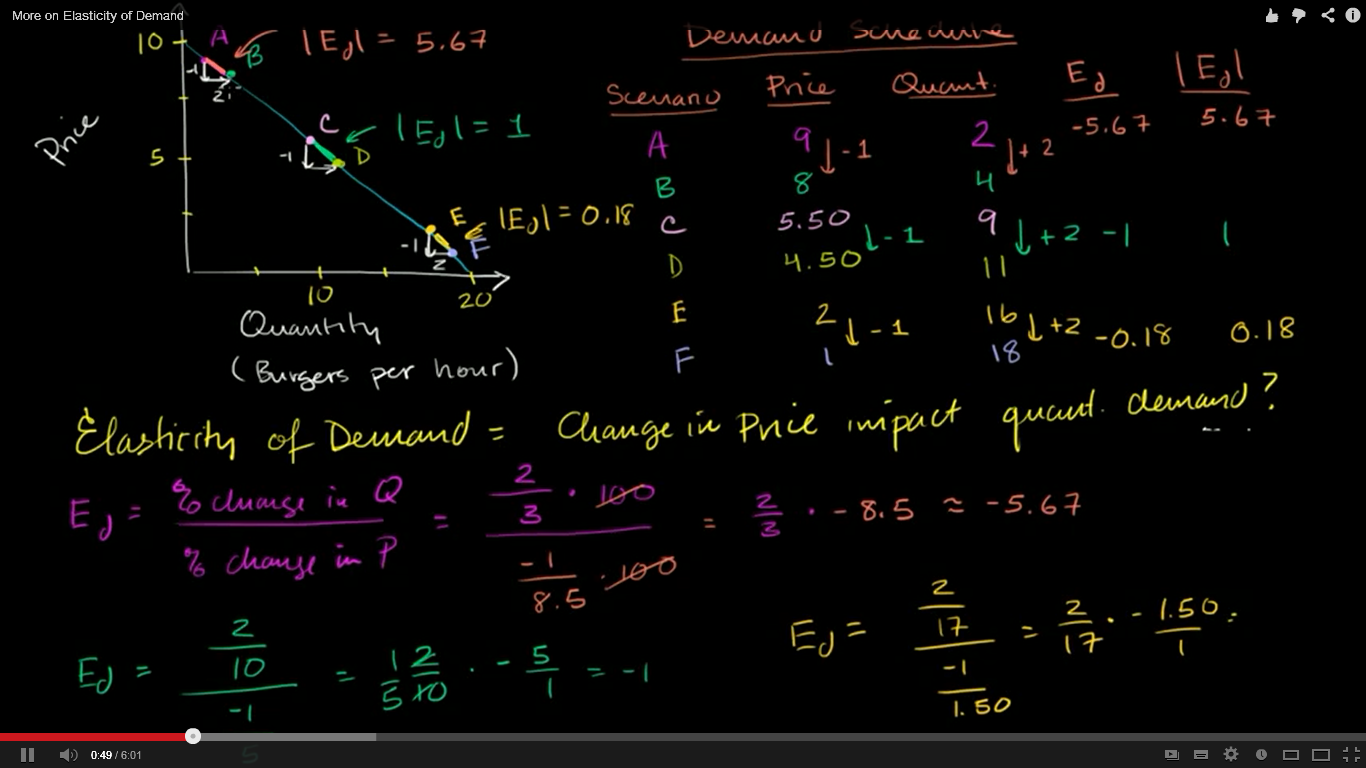 More on Elasticity of Demand
10
A
B
|Ed| = 5.67
-1
2
Price
C
|Ed| = 1
5
-1
D
E
|Ed| = 0.18
-1
F
2
10
20
Quantity
(Burgers per hour)
Demand Schedule
Scenario Price Quant. Ed |Ed|
A 9 ↓-1 2 ↓+2 -5.67 5.67
B 8 4
C 5.50 ↓-1 9 ↓+2 -1 1
D 4.50 11
E 2 ↓-1 16 ↓+2 -0.18 0.18
F 1 18
Elasticity of Demand = Change in Price impact quant. demand?
Ed = % change in Q / % change in P = 2/3 · 100 / -1/8.5 · 100 = 2/3 · -8.5 ≈ -5.67
Ed = 2/10 / -1/5 = 1/5 2/10 · -5/1 = -1
Ed = 2/17 / -1/1.50 = 2/17 · -1.50/1 =
0:49 / 6:01